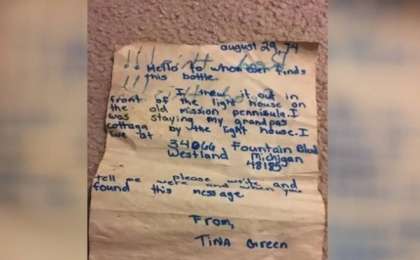 august 29, 74
Hello to whom ever finds
this bottle.
I threw it out in
front of the light house on
the old mission penninsula. I
was staying my grandpas
cottage by the light house. I
live at
34066 Fountain Blvd
Westland Michigan
48185
please write and
tell me were and when you
found this message
From,
Tina Green